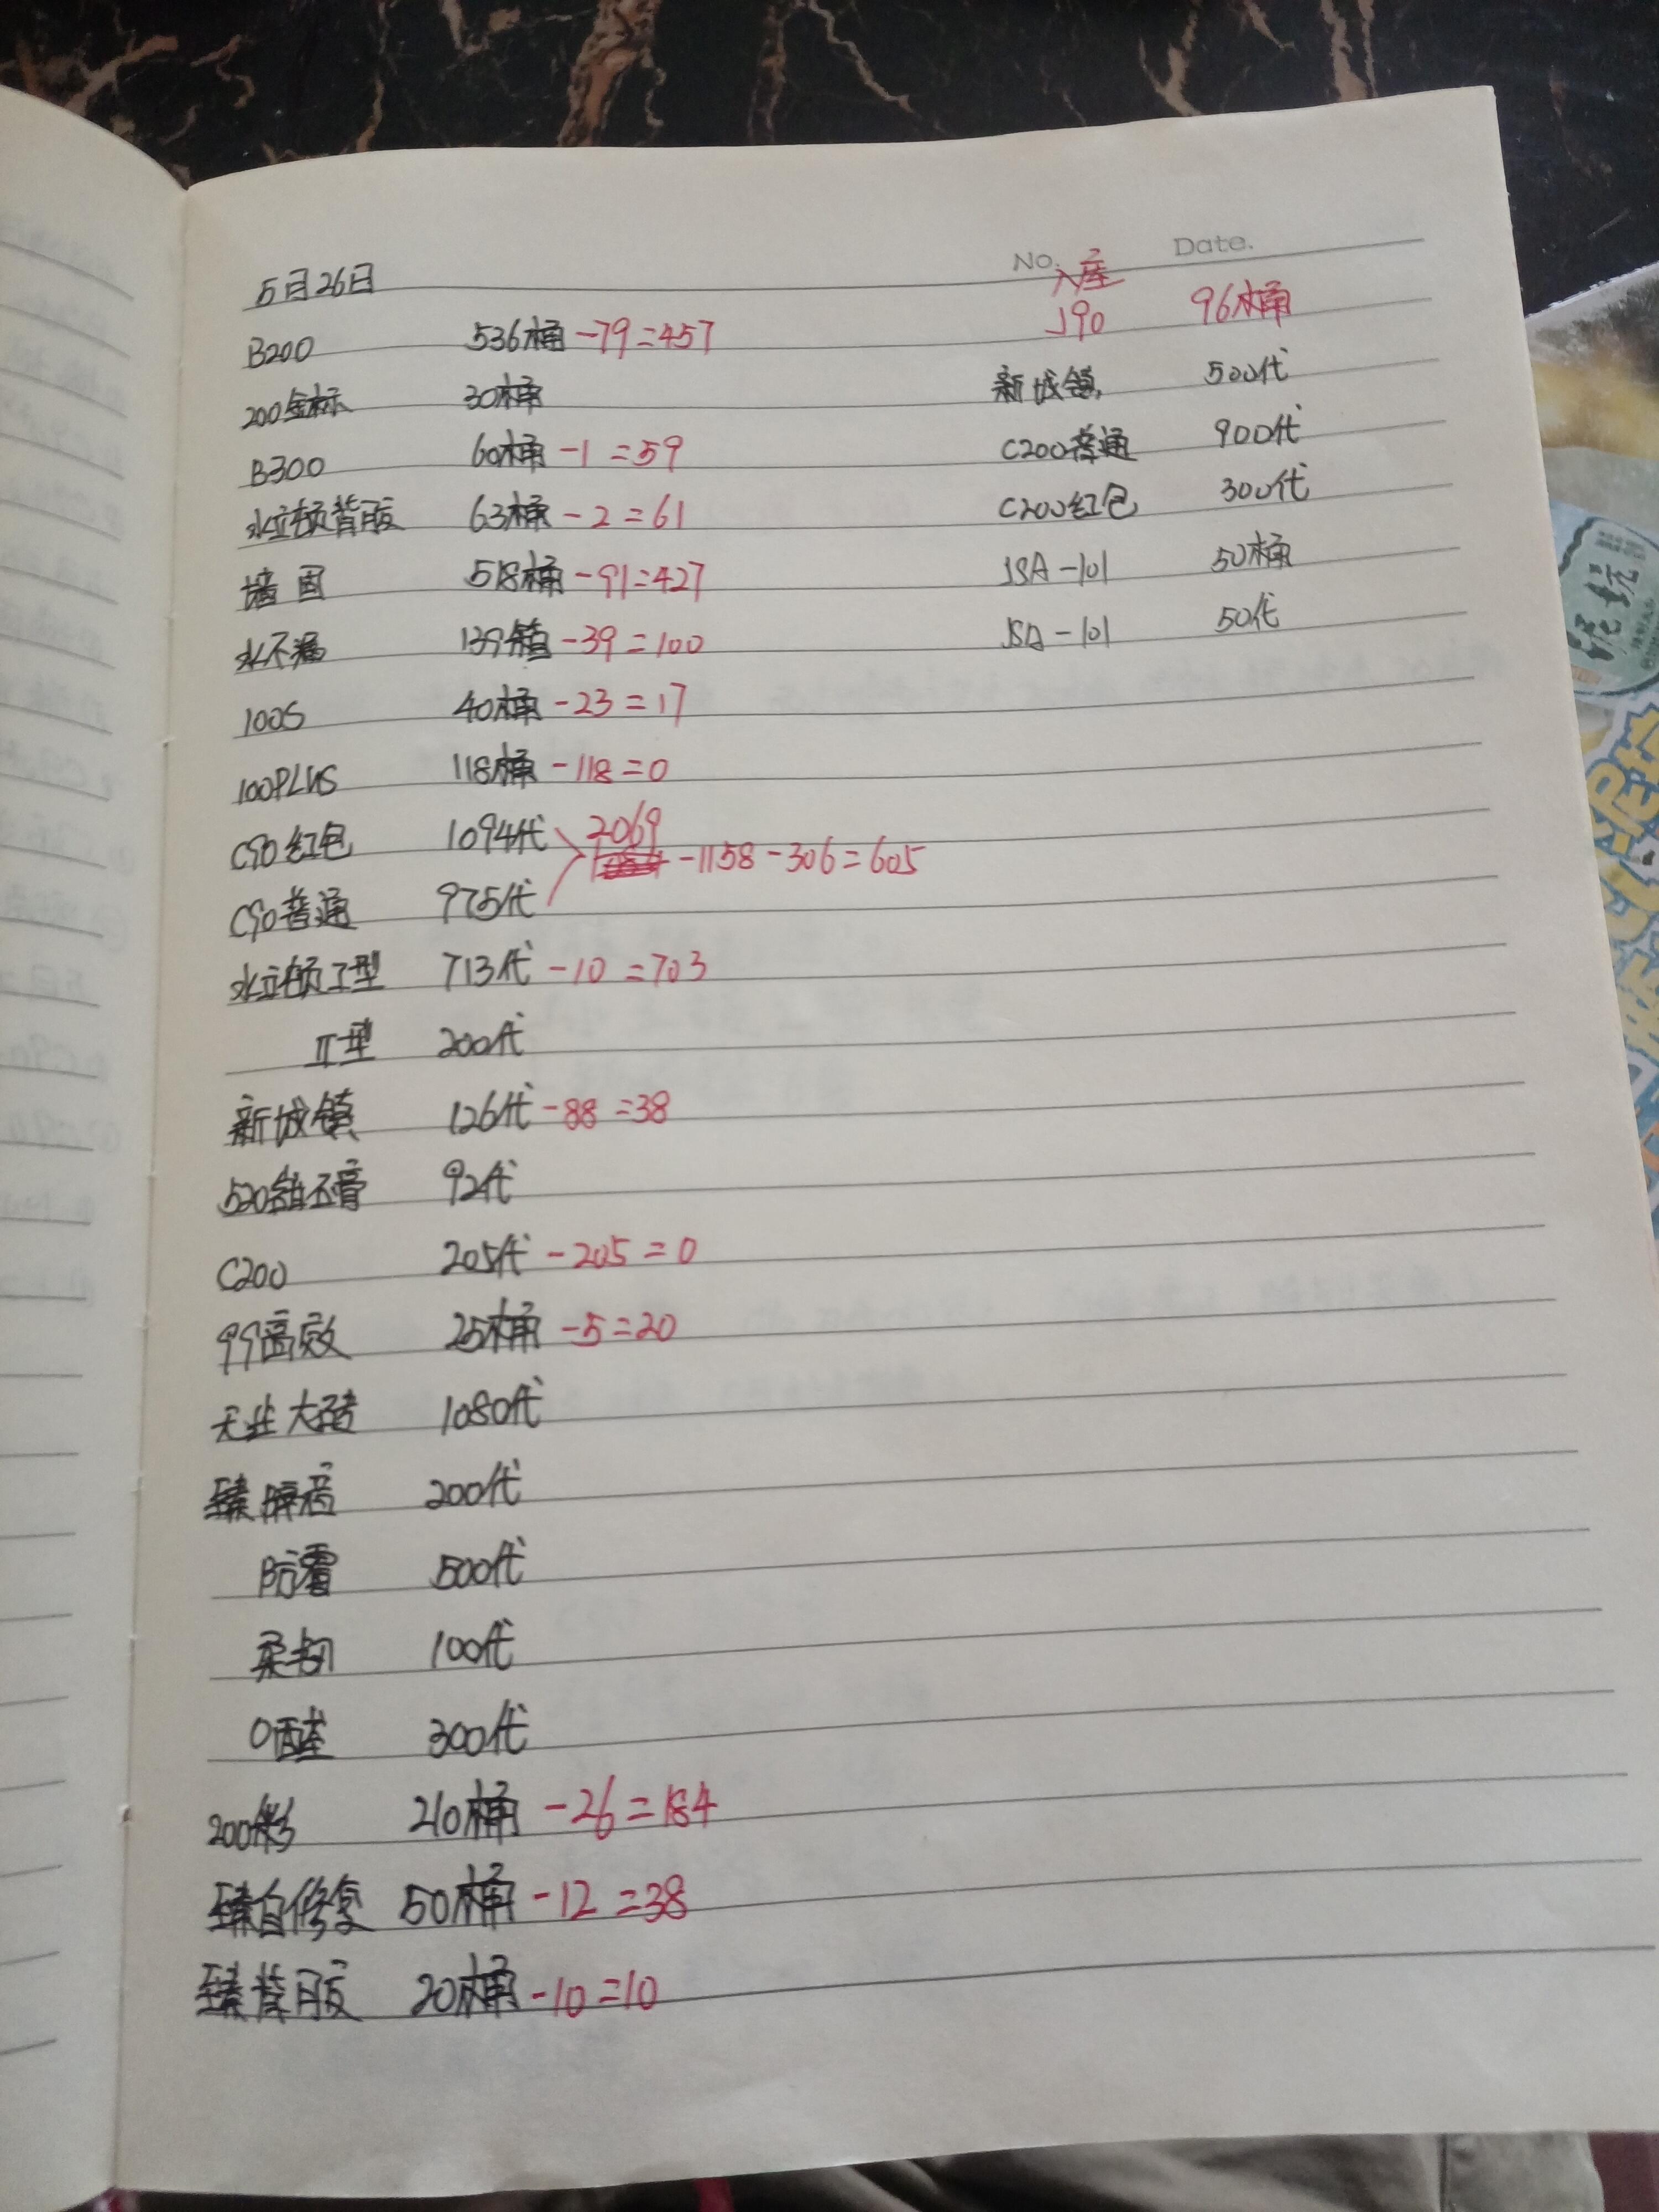 No. Date.
入库
5月26日
B200 536桶 -79=457 J90 96桶
200金标 30桶 新城镇 500代
B300 60桶 -1=59 C200普通 900代
水立顿背胶 63桶 -2=61 C200红包 300代
墙固 518桶 -91=427 JSA-101 50桶
水不漏 139箱 -39=100 JSA-101 50代
100S 40桶 -23=17
100PLUS 118桶 -118=0
C90红包 1094代 2069
-1158-306=605
C90普通 975代
水立顿I型 713代 -10=703
II型 200代
新城镇 126代 -88=38
520 92代
C200 205代 -205=0
99高效 25桶 -5=20
天业大砖 1080代
臻隔音 200代
防霉 500代
柔韧 100代
0醛 300代
200彩 210桶 -26=184
臻自修复 50桶 -12=38
臻背胶 20桶 -10=10